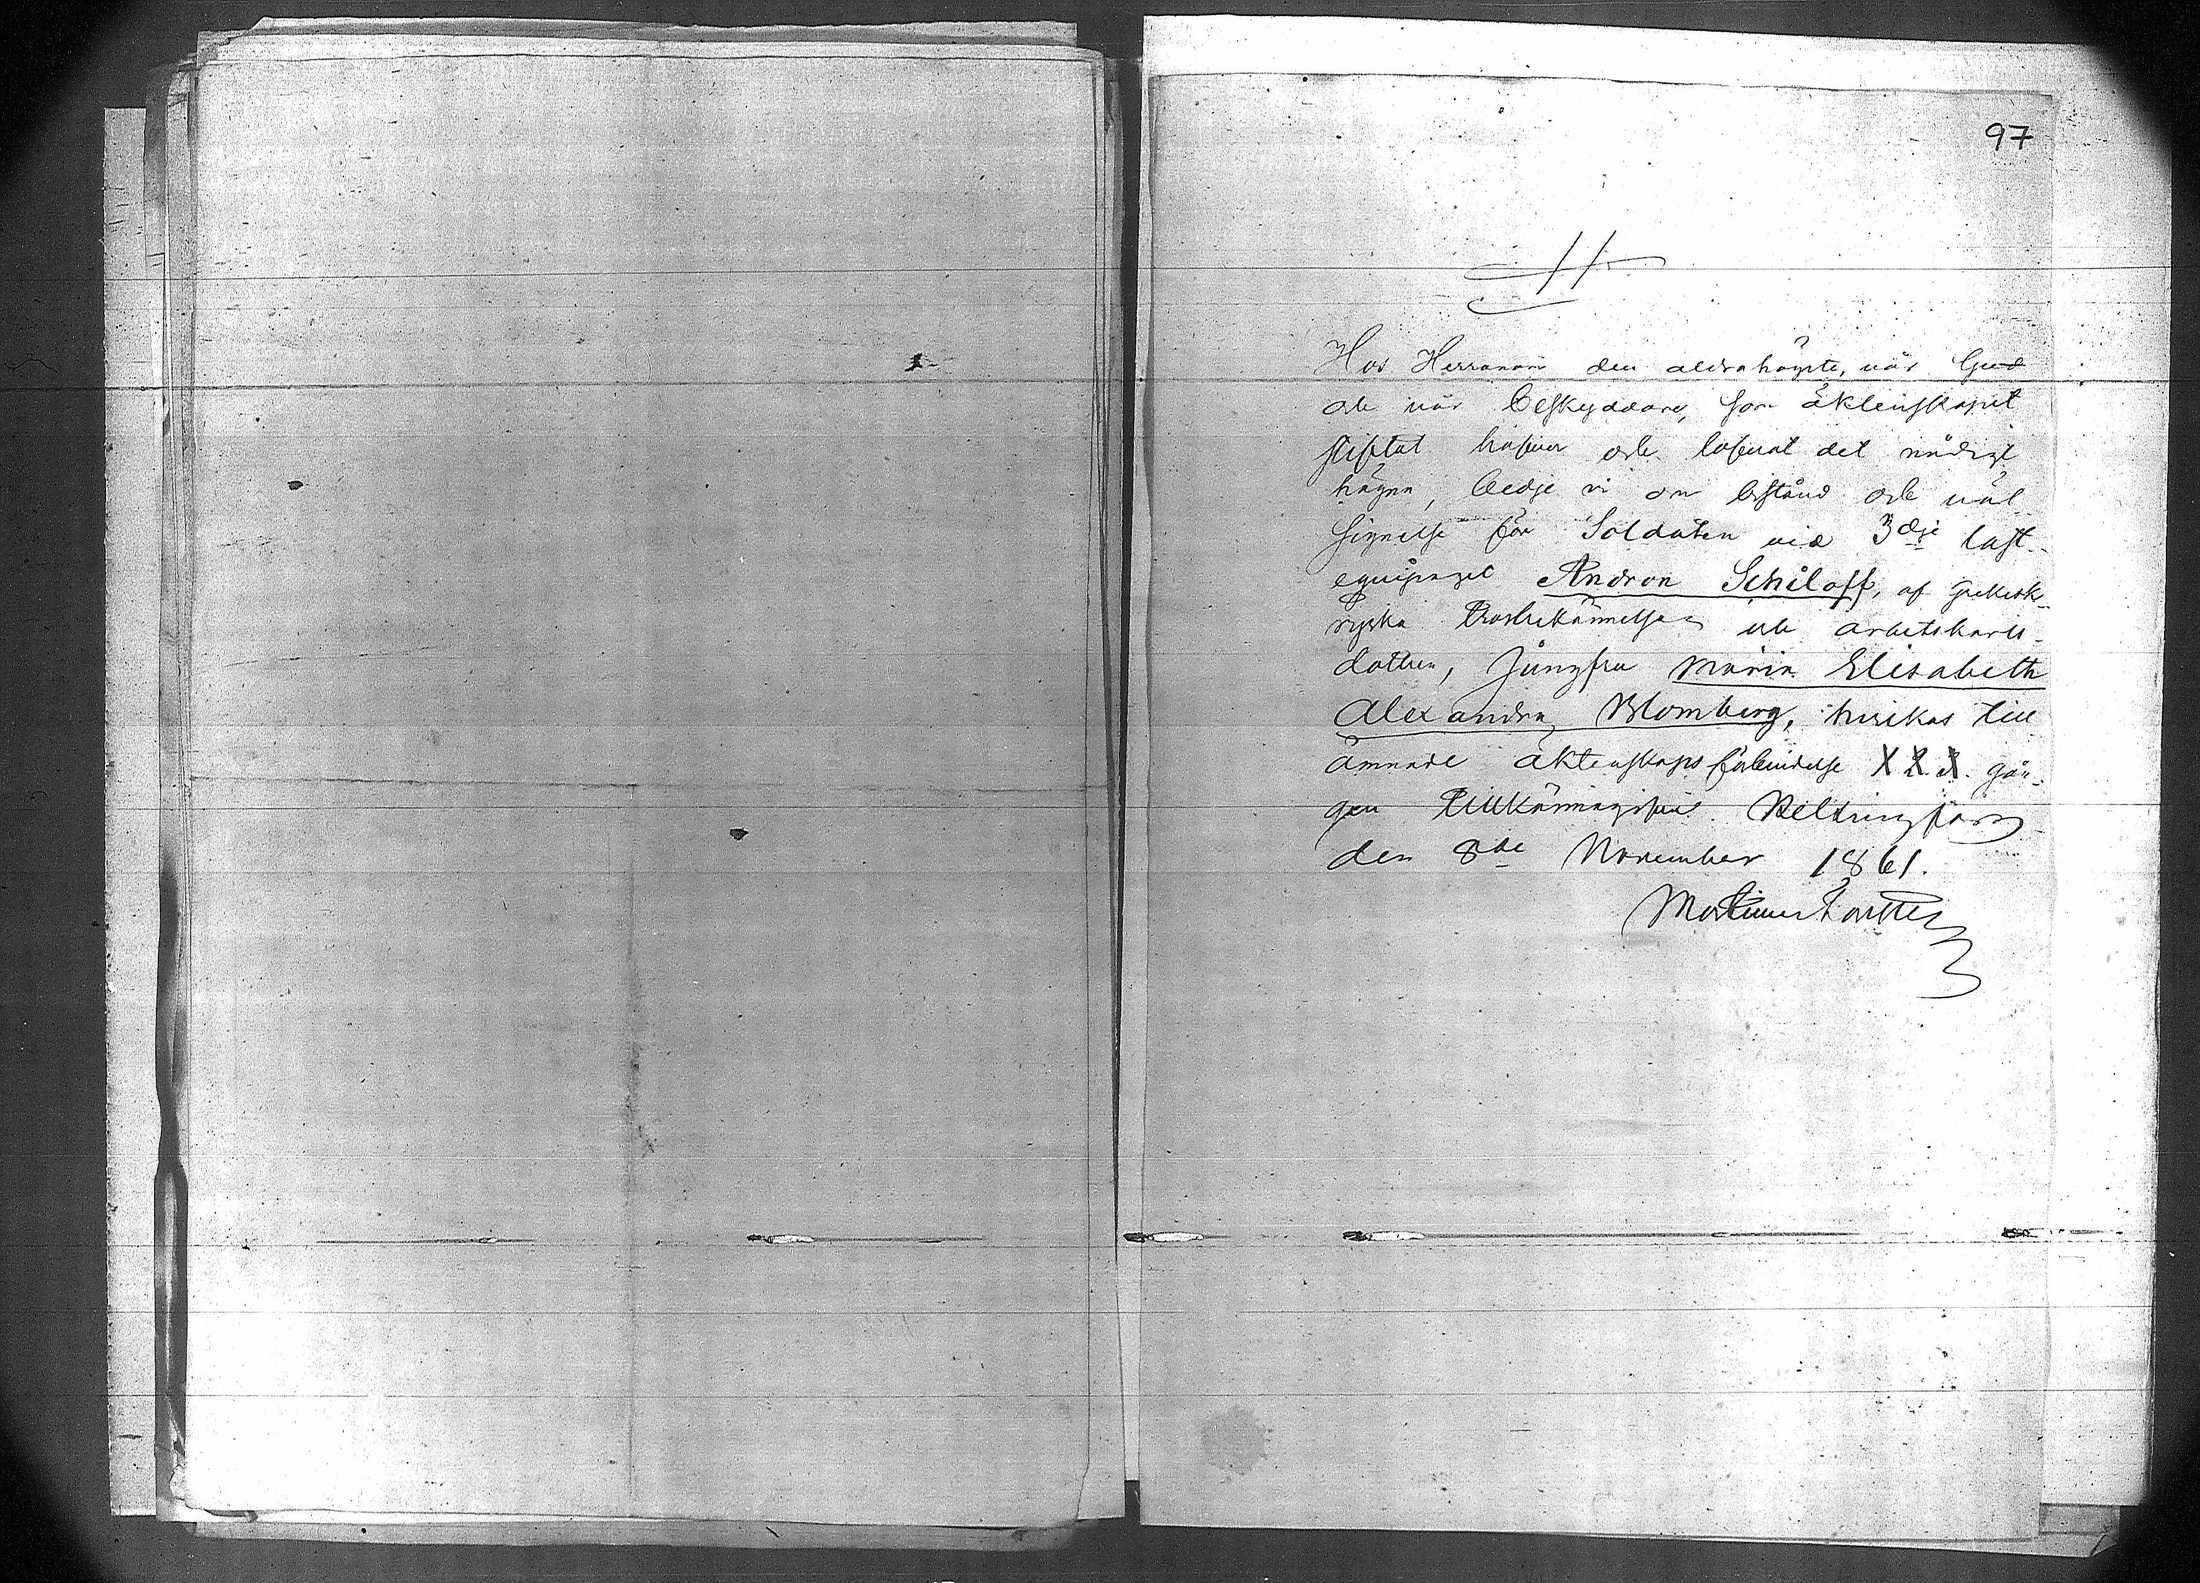 97
Hos Herranom den aldrahögste, vår Gud
och vår beskyddare, som äktenskapet
stiftat hafver och lofvat det nådigt
hägna, bedje vi om bistånd och väl
signelse för Soldaten vid 3dje last-
equipaget Andron Schiloff, af grekisk
ryska trosbekännelsen och arbetskarls-
dottren, Jungfru Maria Elisabeth
Alexandra Blomberg, hvilkas till
ämnade äktenskapsförbindelse X X X gån-
gen tillkännagifves. Helsingfors
den 8de November 1861.